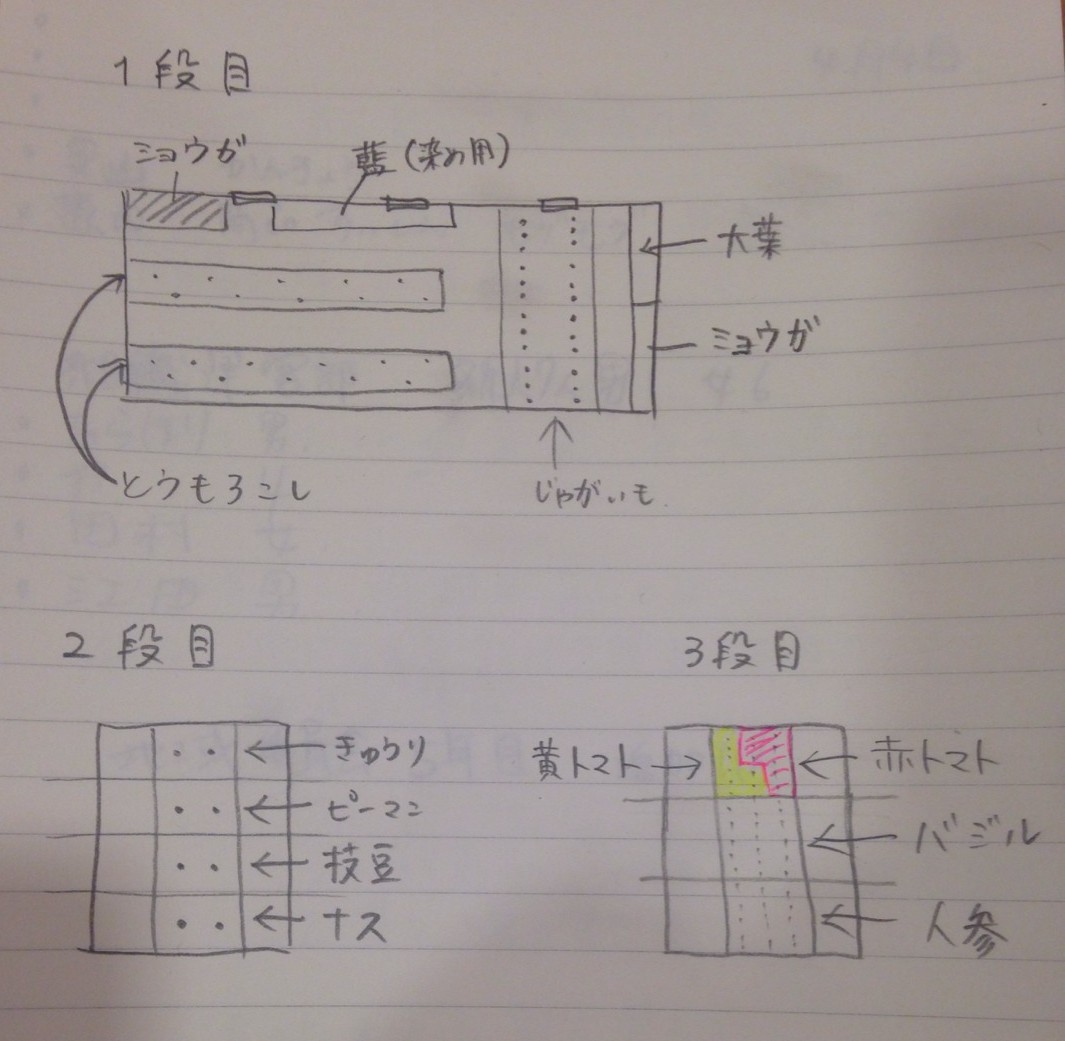 1段目
ミョウガ
藍(染め用)
大葉
ミョウガ
とうもろこし
じゃがいも
2段目
きゅうり
ピーマン
枝豆
ナス
3段目
黄トマト
赤トマト
バジル
人参